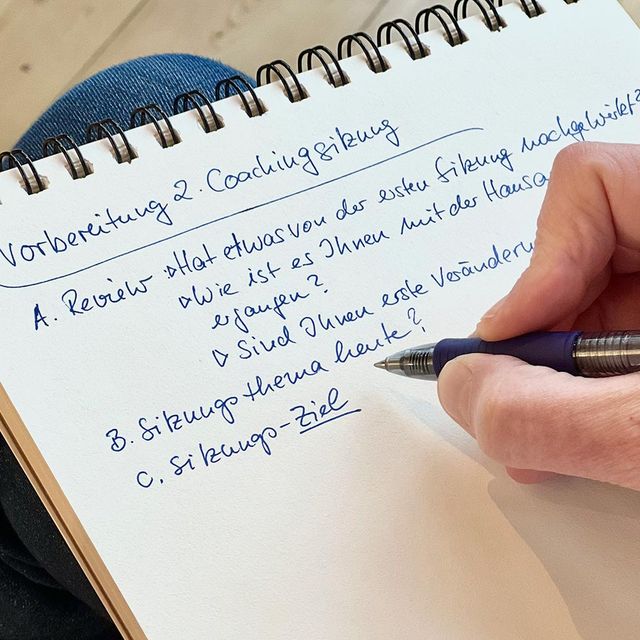 Vorbereitung 2. Coachingsitzung
A. Review ▹Hat etwas von der ersten Sitzung nachgewirkt?
▹Wie ist es Ihnen mit der Hausa
ergangen?
▹ Sind Ihnen erste Veränderun
B. Sitzungsthema heute?
C. Sitzungs-Ziel